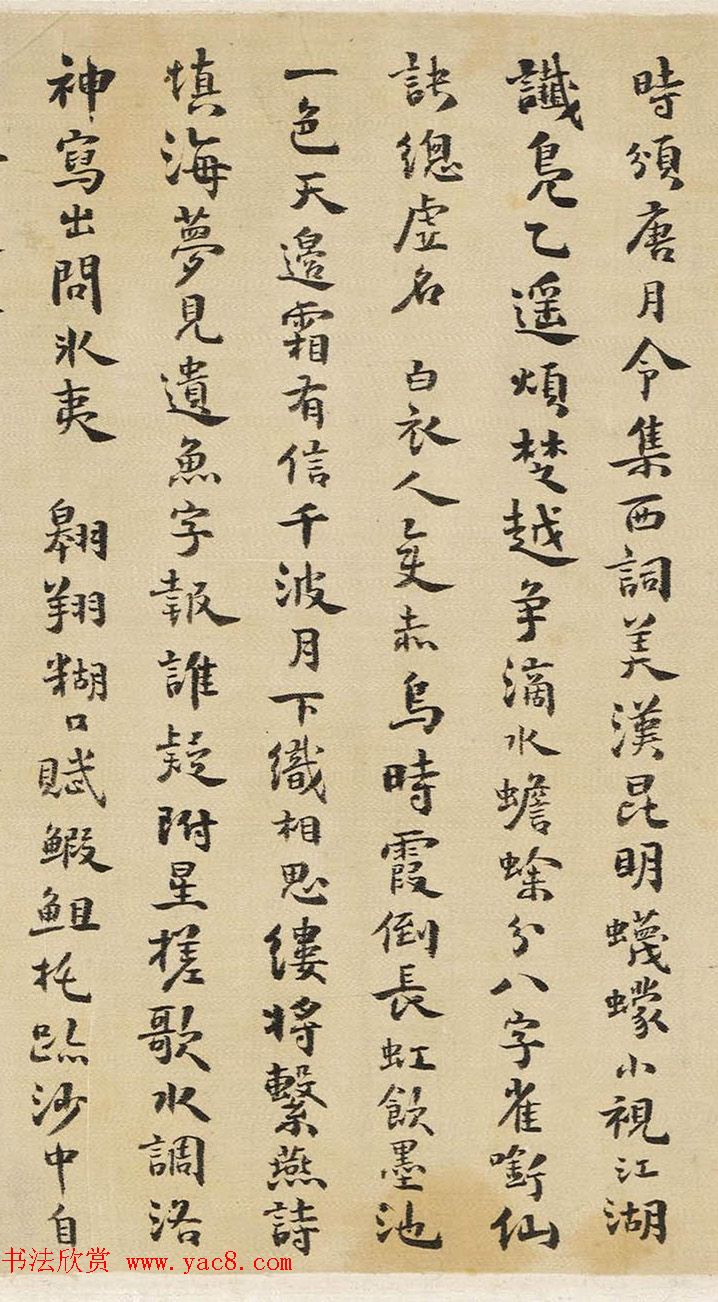 時頒唐月令集西詞美漢昆明蠛蠓小視江湖
讖鳧乙遥煩楚越争滴水蟾蜍分八字雀銜仙
訣總虛名 白衣人隻赤烏時霞倒長虹飲墨池
一色天邉霜有信千波月下織相思縷將繫燕詩
慎海夢見遺魚字報誰疑附星槎歌水調洛
神寫出問冰夷 翱翔糊口賦鰕䱉托跡沙中自
书法欣赏 www.yac8.com